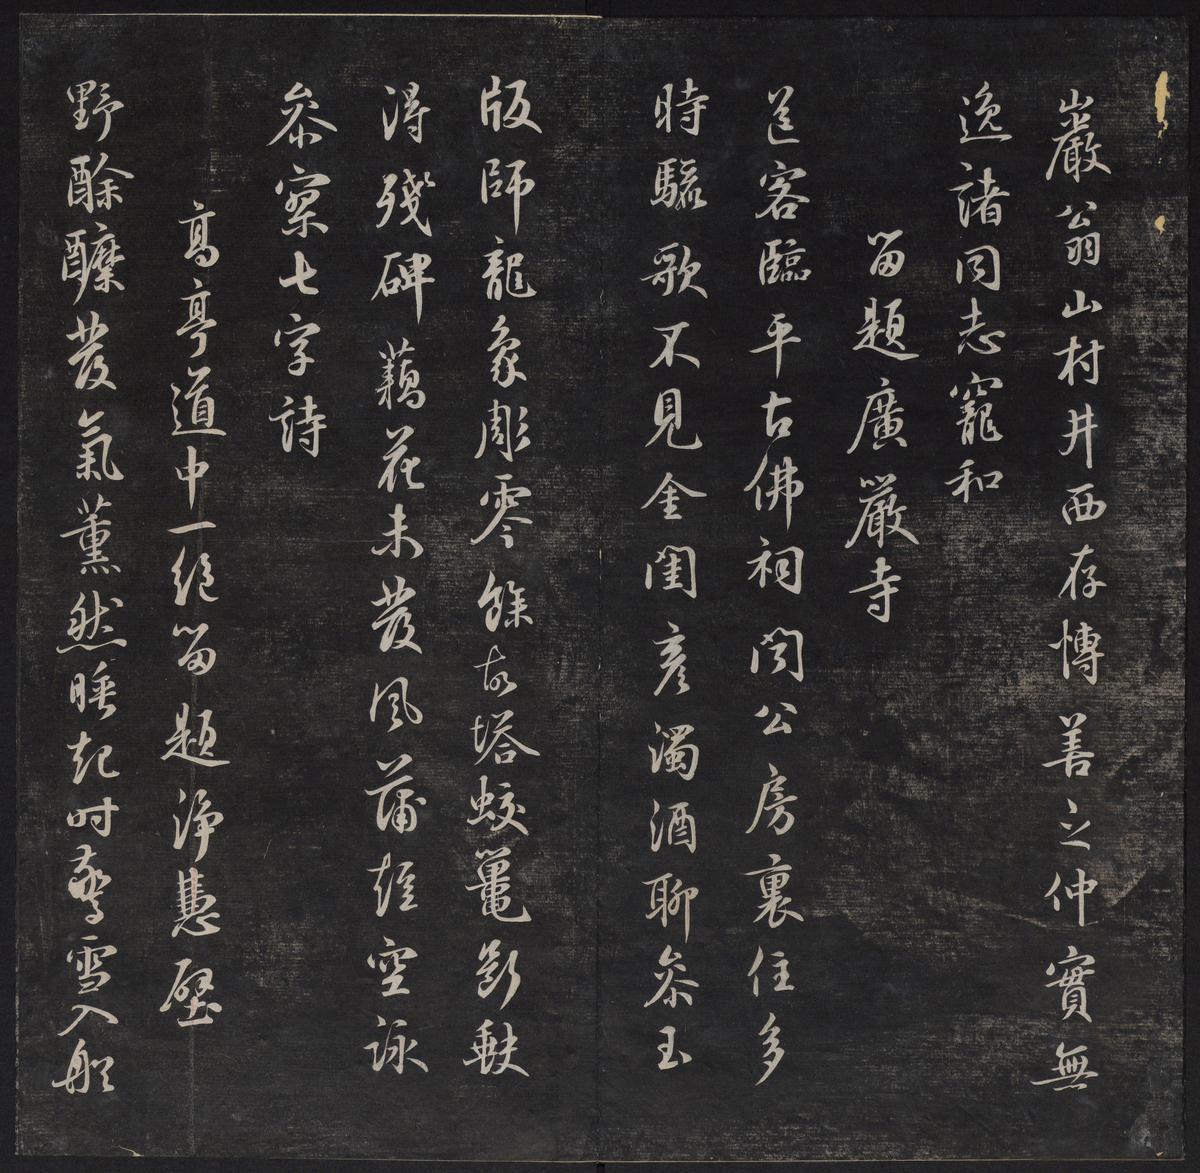 巖公翁山村井西存慱善之仲實無
逸諸同志寵和
留題廣嚴寺
送客臨平古佛祠公房裏住多
時驪歌不見金閨彥濁酒聊參玉
版師龍象彫零餘故塔蛟鼉斷
得殘碑藕花未發風蒲短空詠
參寥七字詩
高亭道中一絕留題淨慧壁
野酴醾發氣薰然睡起時驚雪入船